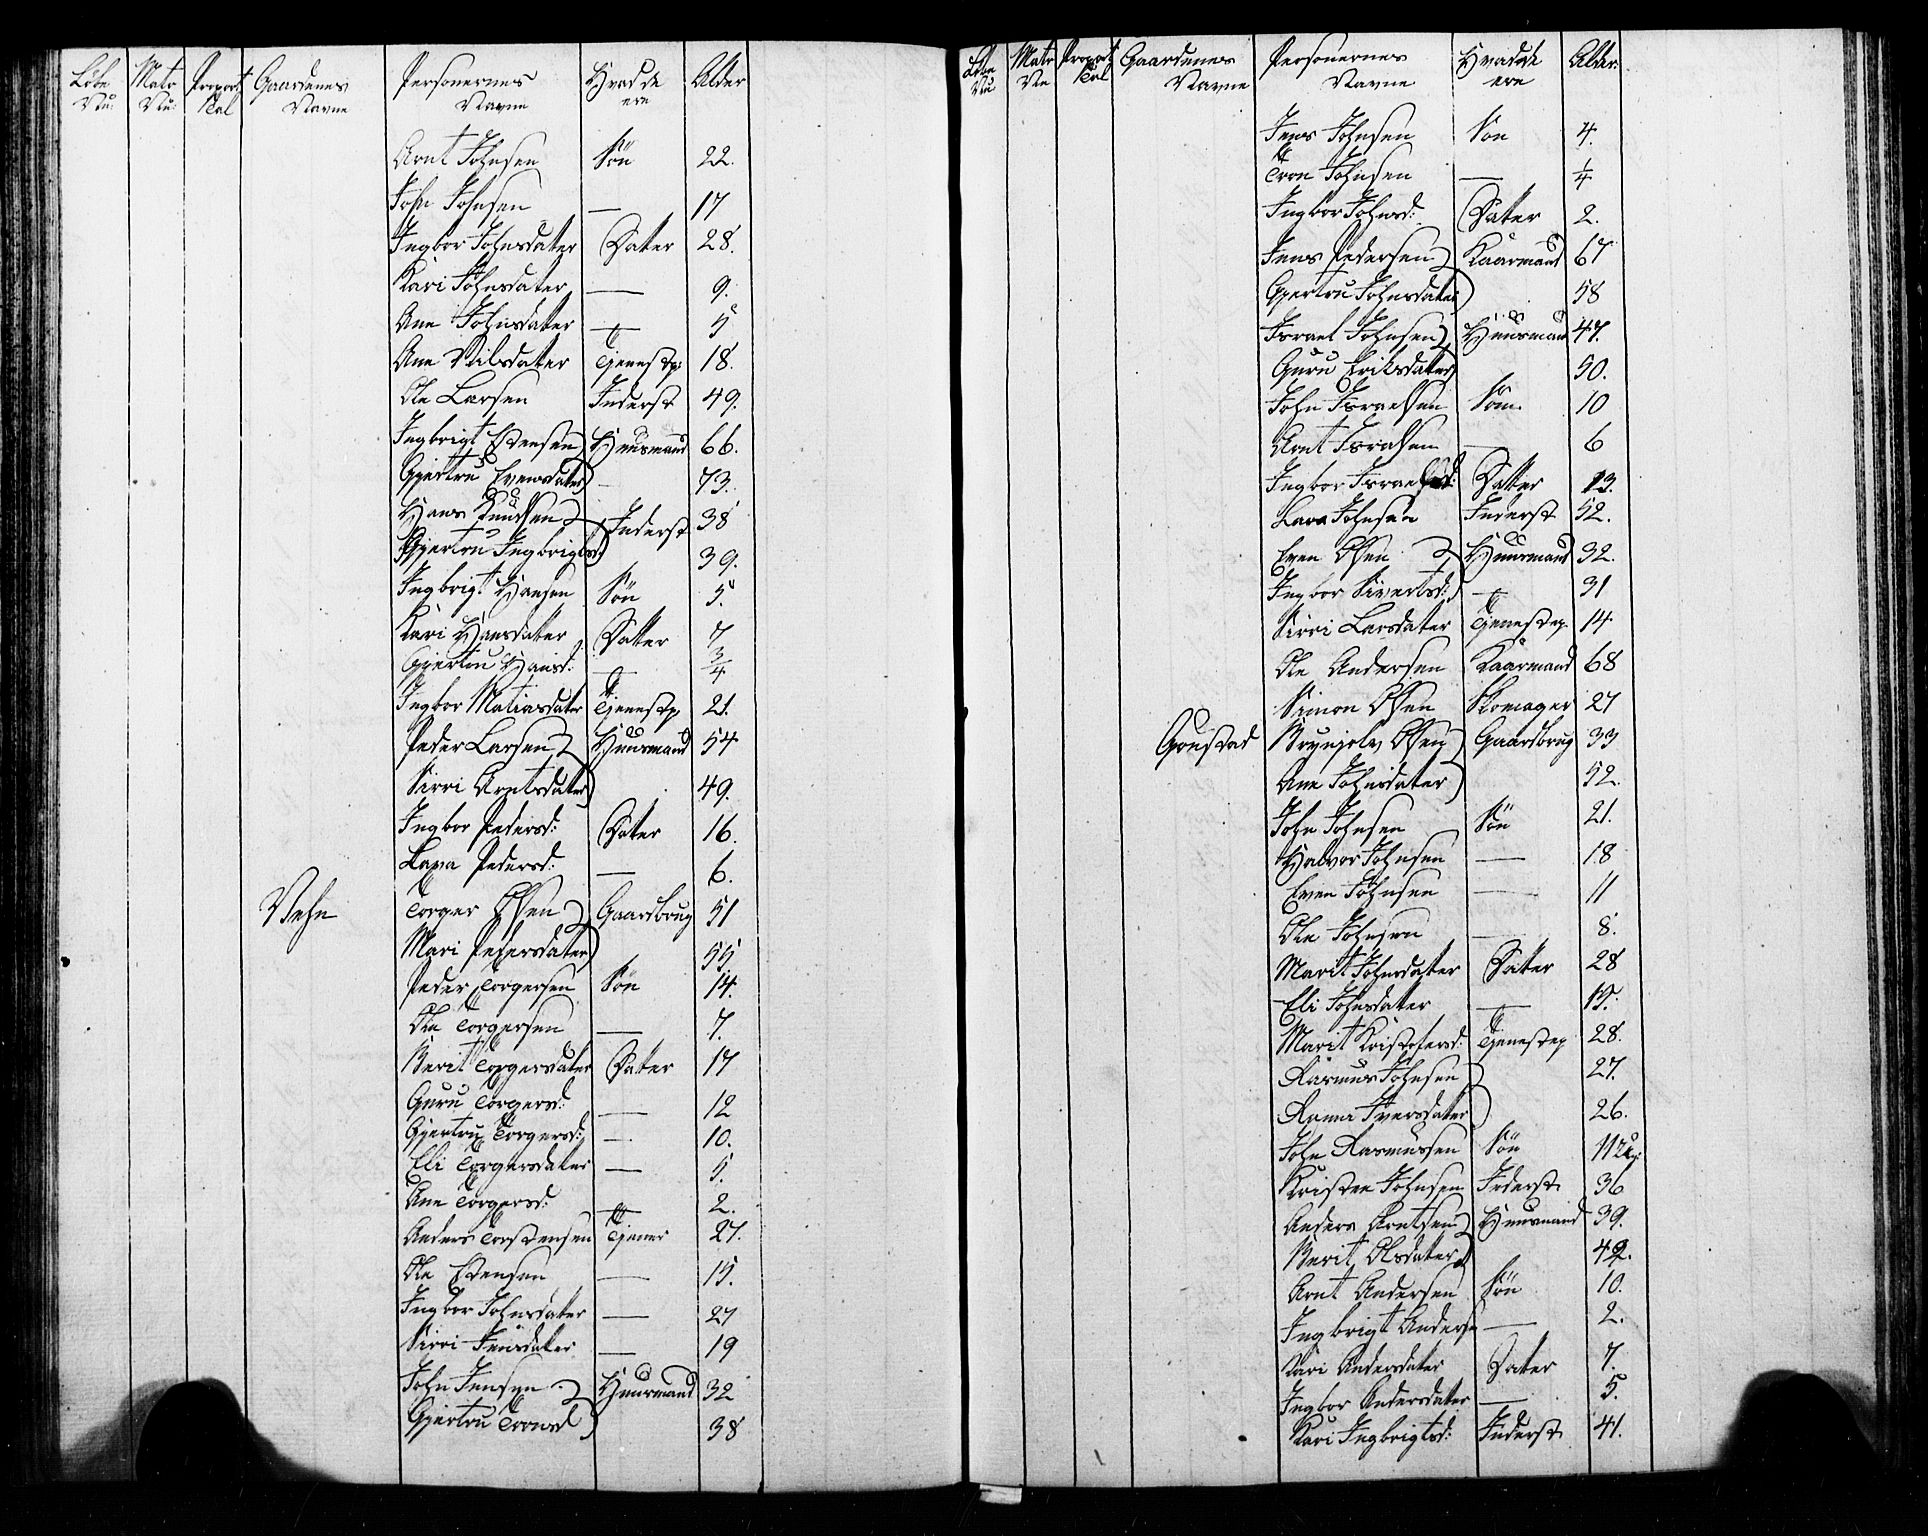 Løbe Nu: Matr Nu: Proport Tal Gaardenes Navne Personernes Navne Hvad de ere Alder
Arnt Johnsen Søn 22.
John Johnsen — 17
Ingbor Johnsdater Dater 28.
Kari Johnsdater — 9.
Ane Johnsdater — 5
Ane Nilsdater Tjenestp: 18.
Ole Larsen Inderst 49.
Ingbrigt Estensen Huusmand 66.
Gjertru Evensdater — 73.
Hans Knudsen Inderst 38
Gjertru Ingbrigtsd: 39.
Ingbrigt Hansen Søn 5.
Kari Hansdater Datter 7
Gjertru Hansd: — 3/4
Ingbor Matiasdater Tjenestp 21.
Peder Larsen Huusmand 54
Sirri Arntsdater 49.
Ingbor Pedersd: Dater 16.
Lava Pedersd: — 6.
Vehn Torger Olsen Gaardbrug 51
Mari Pedersdater 55
Peder Torgersen Søn 14.
Ole Torgersen — 7.
Berit Torgersdater Dater 17
Guru Torgersd: — 12
Gjertru Torgersd: — 10.
Eli Torgersdater — 5.
Ane Torgersd: — 2.
Anders Torstensen Tjener 27.
Ole Estensen — 15.
Ingbor Johnsdater — 27
Sirri Jensdater — 19
John Jensen Huusmand 32
Gjertru Tronsd 38
Løbe Nu Matr Nu Proport Tal Gaardenes Navne Personernes Navne Hvad de ere Alder
Jens Johnsen Søn 4.
Tron Johnsen — 1/4
Ingbor Johnsd: Dater 2.
Jens Pedersen Kaarmand 67
Gjertru Johnsdater 58
Israel Johnsen Huusmand 47.
Guru Eriksdater 50.
John Israelsen Søn. 10
Arnt Israelsen — 6
Ingbor Israelsd: Datter 13.
Lava Johnsen Inderst 52.
Even Olsen Huusmand 32.
Ingbor Sivertsd: — 31
Sirri Larsdater Tjenestep. 14
Ole Andersen Kaarmand 68
Simon Olsen Skomager 27
Gonstad Brynjolv Olsen Gaardbrug 33
Ane Johnsdater 52.
John Johnsen Søn 21.
Halvor Johnsen — 18
Even Johnsen — 11
Ole Johnsen — 8.
Marit Johnsdater Dater 28
Eli Johnsdater — 15.
Marit Kristofersd: Tjenestep 28.
Rasmus Johnsen 27.
Ranna Iversdater 26.
John Rasmussen Søn
Kristen Johnsen Inderst 36
Anders Arntsen Huusmand 39.
Berit Olsdater 42.
Arnt Andersen Søn 10.
Ingbrigt Anderse — 2.
Kari Andersdater Dater 7.
Ingbor Andersdater — 5.
Kari Ingbrigtsd: Inderst 41.